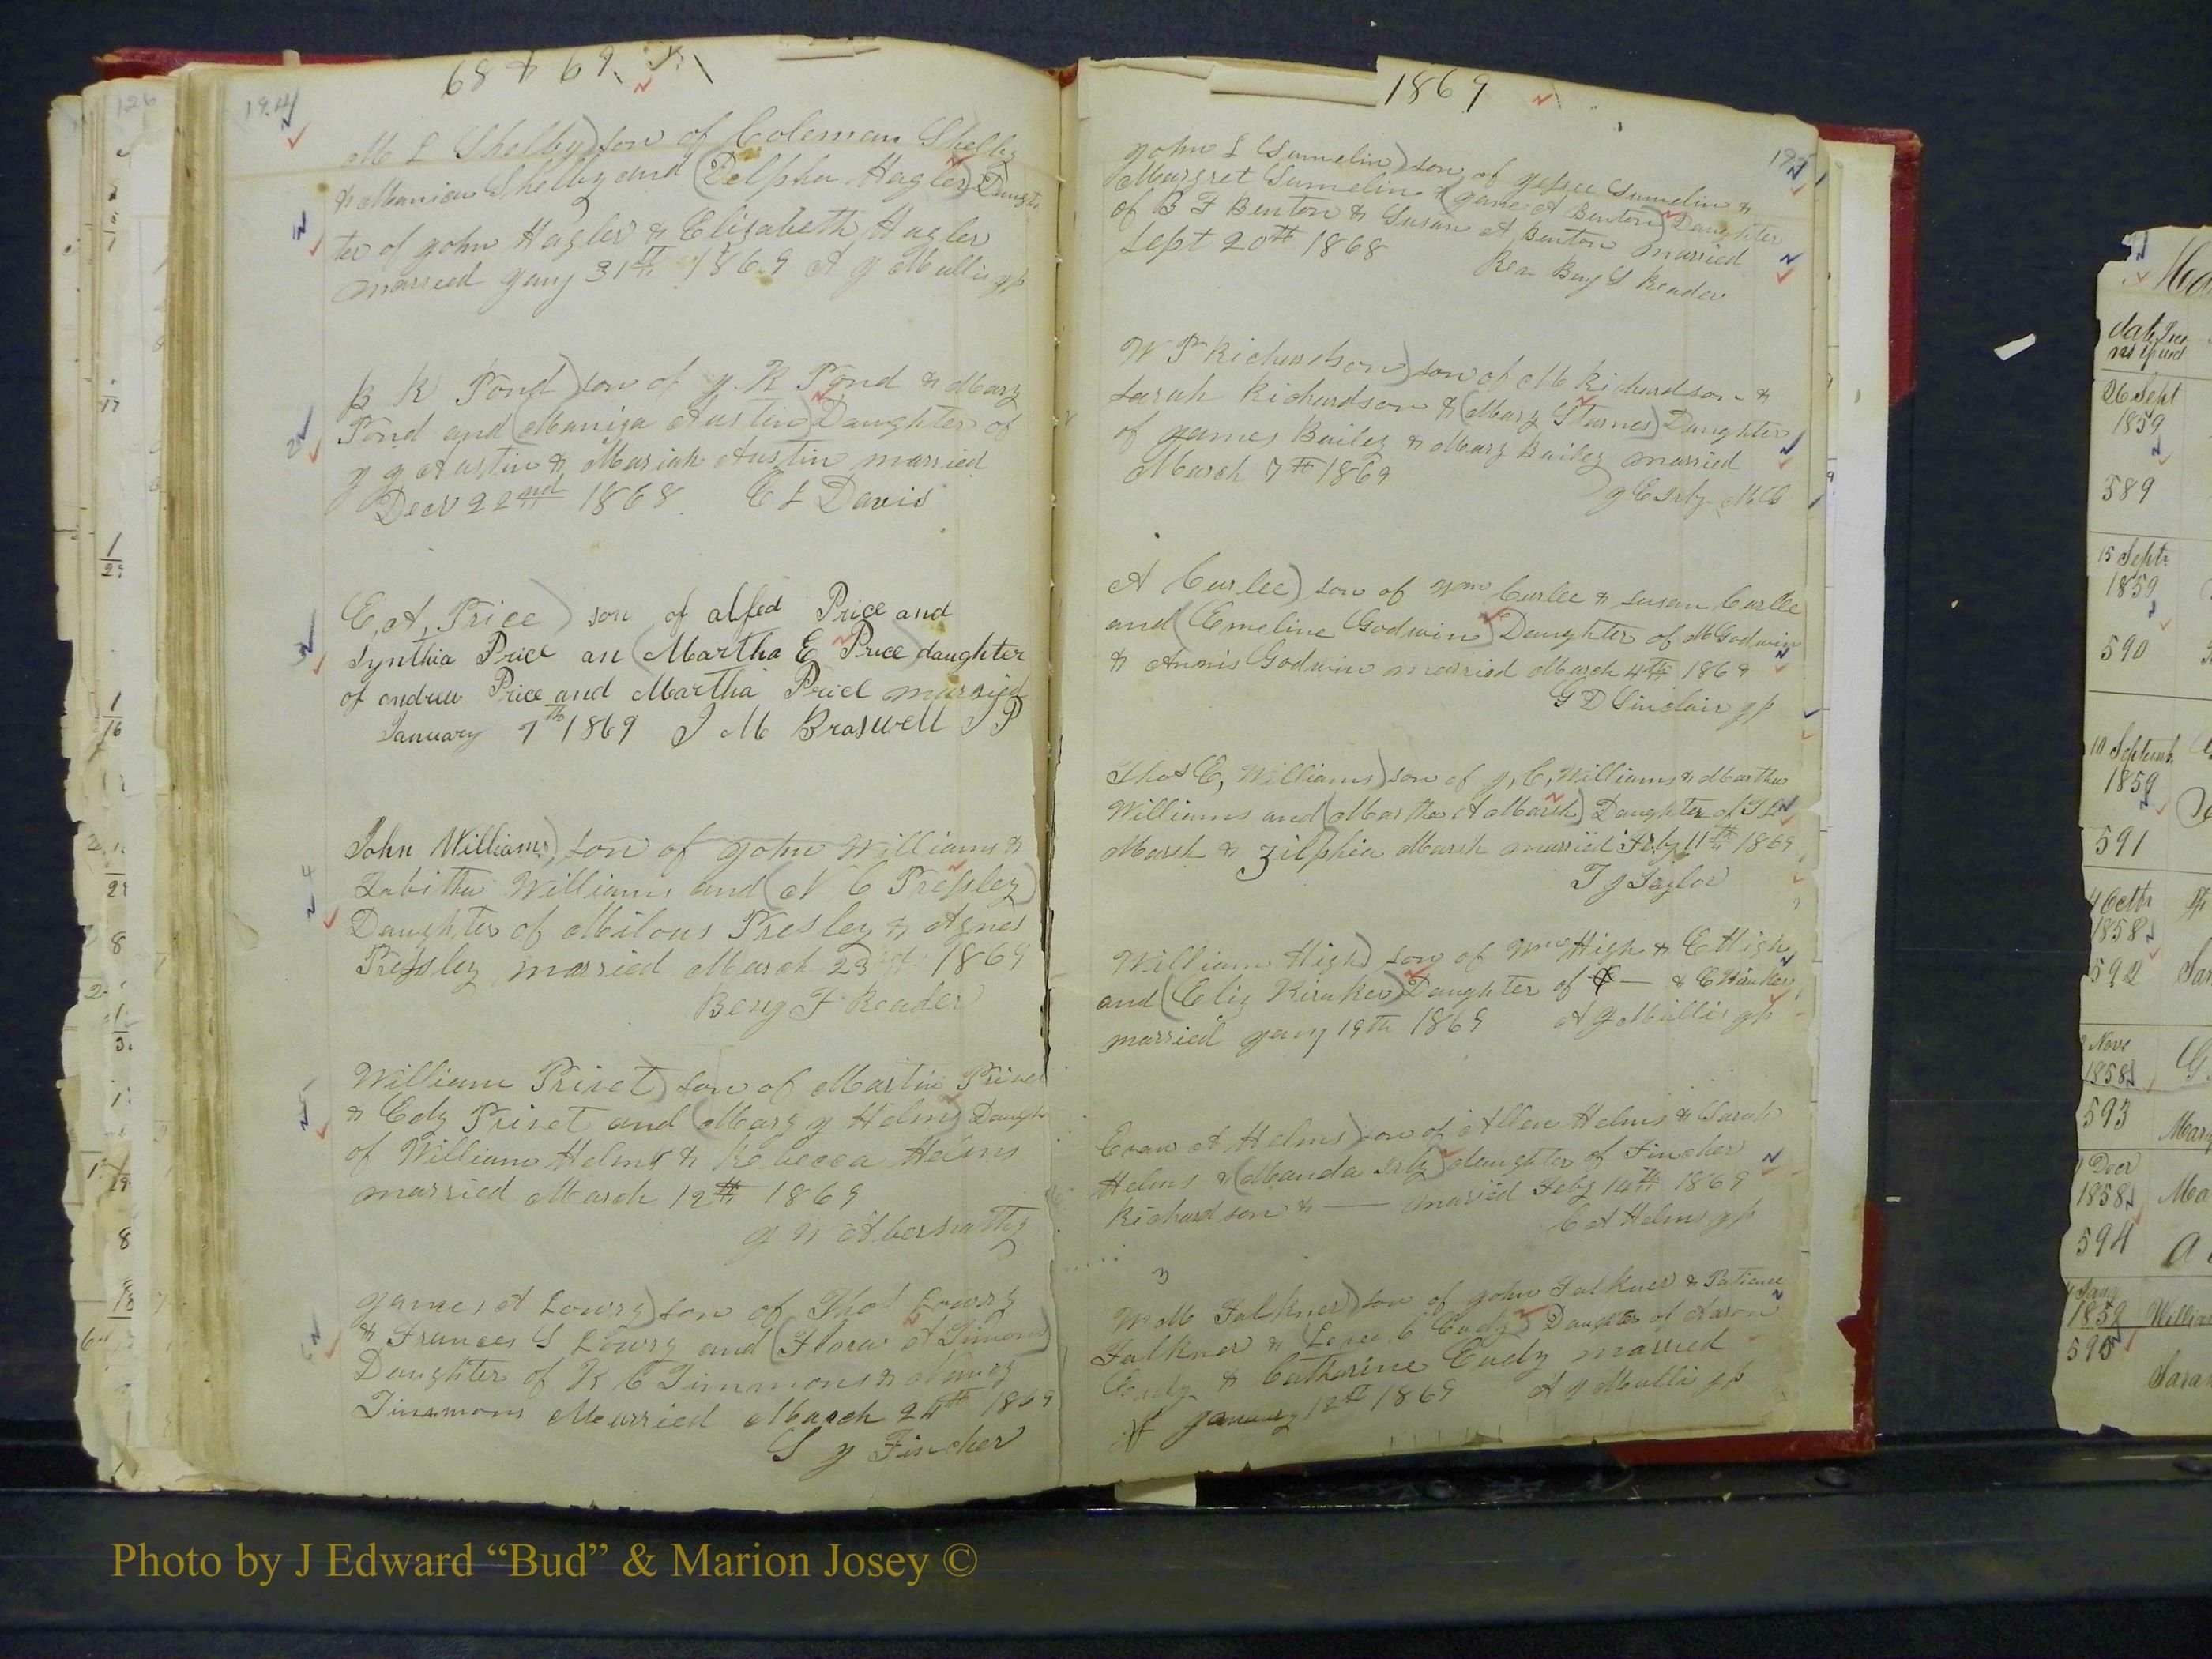 68 & 69
194
M L Shelby) son of Coleman Shelby
& Shelby and (Delpha Hagler) Daugh
ter of John Hagler & Elizabeth Hagler
married Jany 31st 1869 A J Mullis Jp
B K Pond) son of J. R Pond & Mary
Pond and (Maniza Austin) Daughter of
J J Austin & Mariah Austin married
Decr 22nd 1868 E L Davis
E, A, Price) son of alfed Price and
Synthia Price an (Martha E Price) daughter
of andrew Price and Martha Price married
January 7th 1869 J M Braswell J P
John Williams) son of John Williams &
Tabitha Williams and (N C Pressley)
Daughter of Milous Presley & Agnes
Pressley married March 23rd 1869
Benj F Reader
William Privet) son of Martin Privet
& Edy Privet and (Mary J Helms) Daugh
of William Helms & Rebecca Helms
married March 12th 1869
J N Abernathy
James A Lowry) son of Thos Lowry
& Frances S Lowry and (Flora A Simons)
Daughter of R C Timmons & Nancy
Timmons Married March 24th 1869
S J Fincher
1869
195
John L Sumelin) son of Jessee Sumelin &
Margret Sumelin & (Jane A Benton) Daughter
of B F Benton & Susan A Benton married
Sept 20th 1868
Rev Benj S Reader
W P Richardson) son of M Richardson &
Sarah Richardson & (Mary Starnes) Daughter
of James Bailey & Mary Bailey married
March 7th 1869
J E Irby M G
A Curlee) son of Wm Curlee & Susan Curlee
and (Emeline Godwin) Daughter of M Godwin
& Annis Godwin married March 4th 1869
G D Sinclair Jp
Thos E, Williams) son of J, C, Williams & Martha
Williams and (Martha A Marsh) Daughter of
Marsh & Zilphia Marsh married Feby 11th 1869
T J Taylor
William High) son of Wm High & E High
and (Eliz Kiruker) Daughter of — & E
married Jany 19th 1869 A J Mullis Jp
Evan A Helms) son of Allen Helms & Sarah
Helms & (Manda Irby) daughter of Fincher
Richardson & — maried Feby 14th 1869
C A Helms Jp
3
W M Falkner) son of John Falkner & Patience
Falkner & ( C Eudy) Daughter of Aaron
Eudy & Catharine Eudy married
January 12th 1869 A J Mullis Jp
126
26 Sept
1859
589
15 Septr
1859
590
1859
591
4 Octr
1858
592
Nove
1858
593
Decr
1858
594
1859
595
Photo by J Edward “Bud” & Marion Josey ©